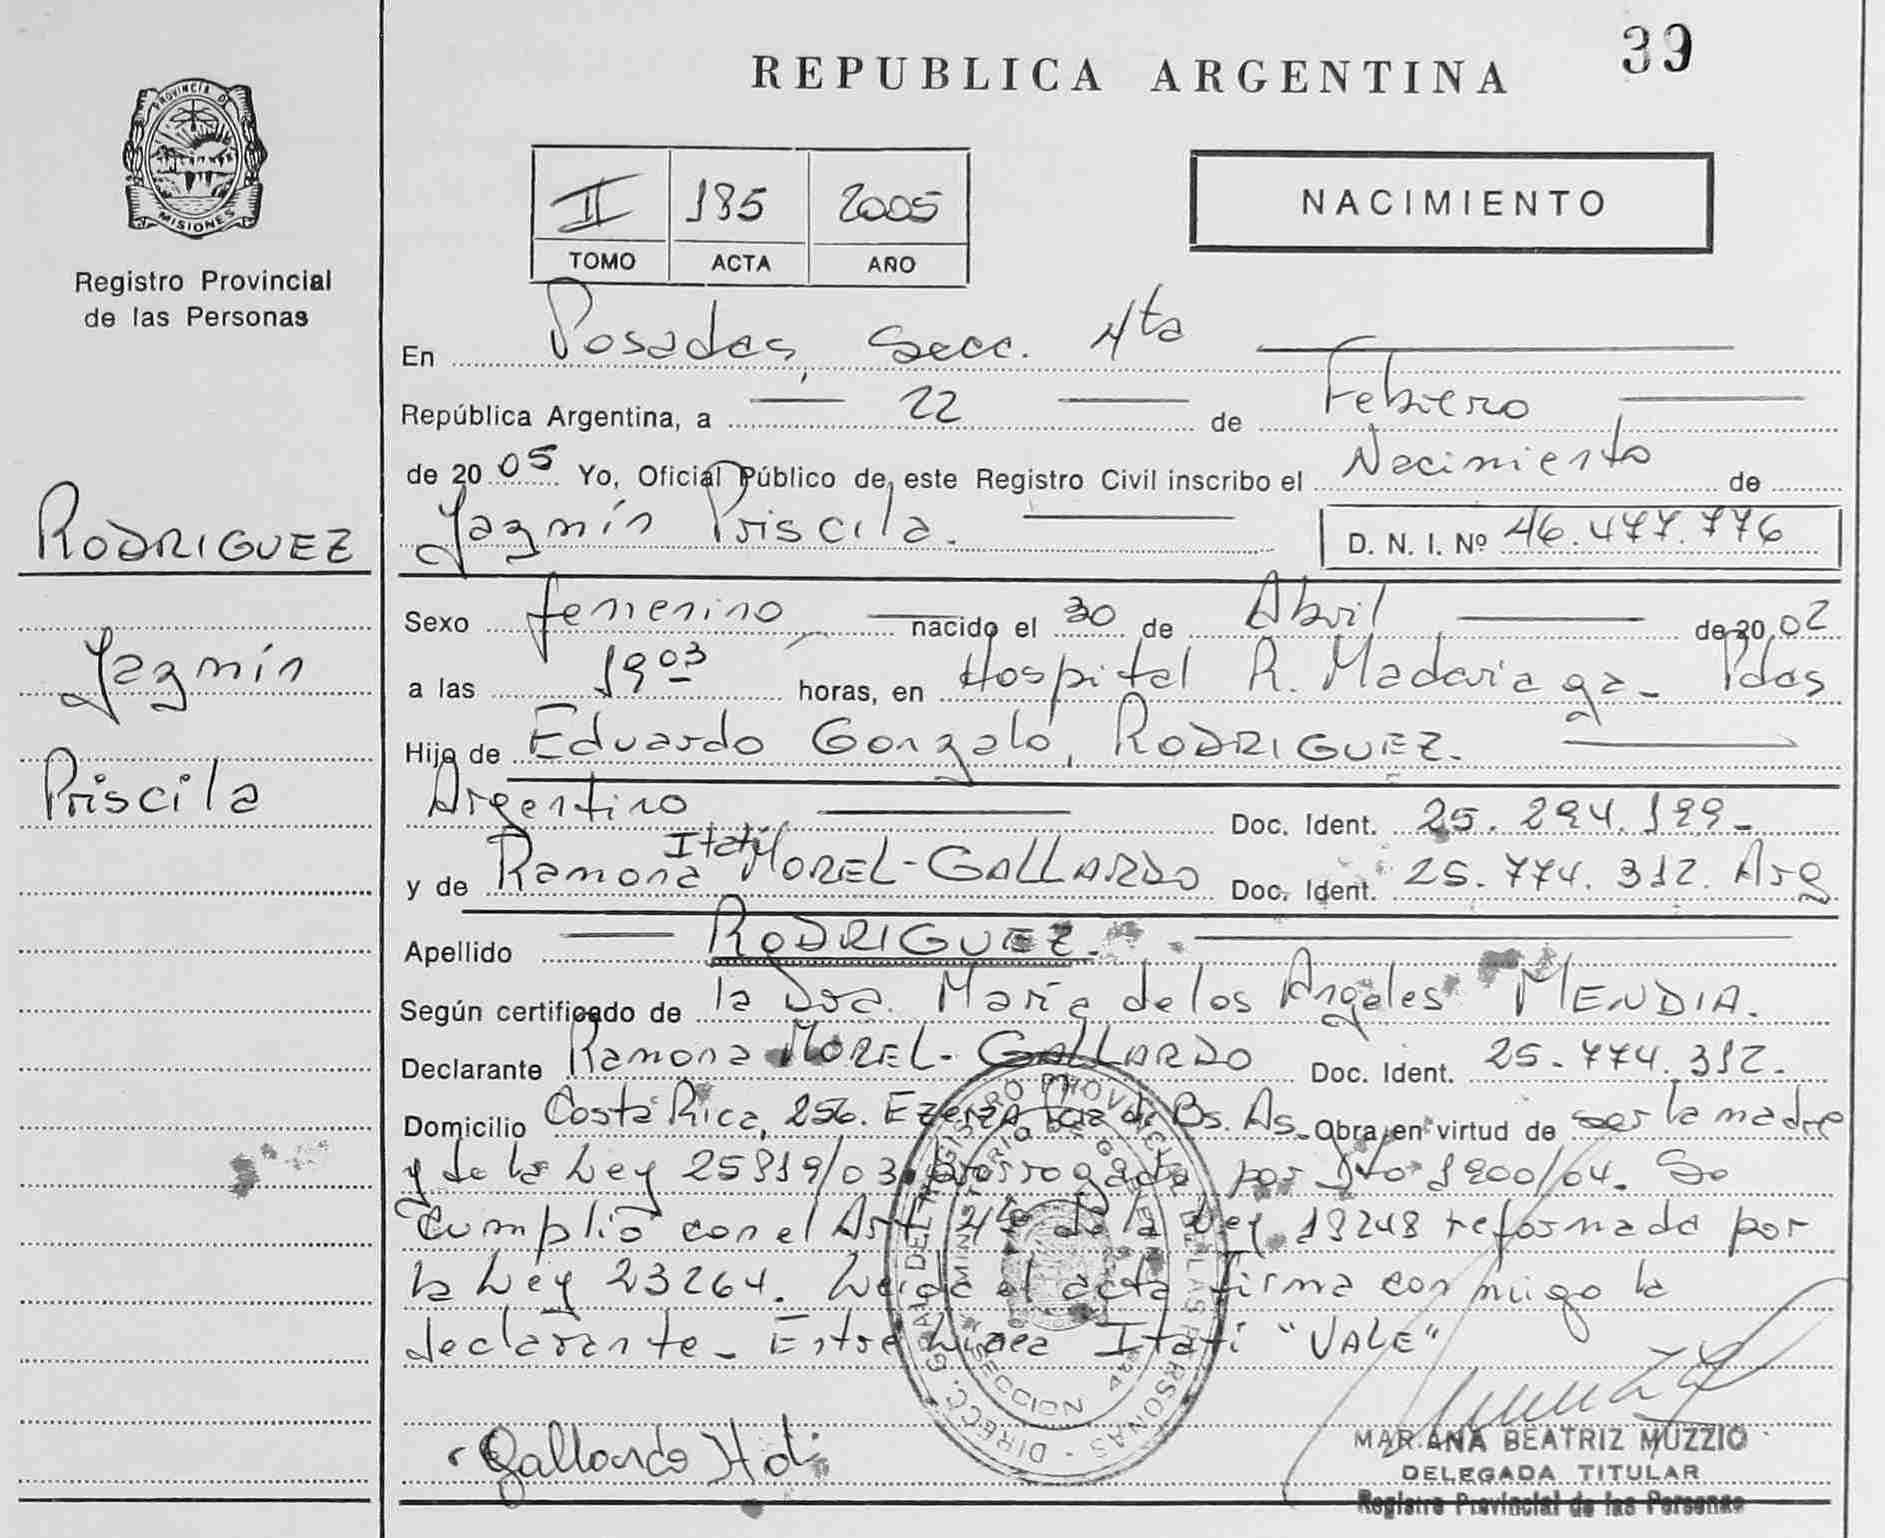 39
REPUBLICA ARGENTINA
PROVINCIA DE
MISIONES
Registro Provincial
de las Personas
II 185 2005
TOMO ACTA AÑO
NACIMIENTO
En Posadas, Secc. 4ta
República Argentina, a 22 de Febrero
de 20 05 Yo, Oficial Público de este Registro Civil inscribo el Nacimiento de
Jazmín Priscila. D. N. I. Nº 46.477.776
RODRIGUEZ
Jazmín
Priscila
Sexo femenino nacido el 30 de Abril de 20 02
a las 19 03 horas, en Hospital R. Madariaga - Pdas
Hijo de Eduardo Gonzalo, RODRIGUEZ.
Argentino Doc. Ident. 25.294.199-
y de Ramona Itatí MOREL-GALLARDO Doc. Ident. 25.774.312. Arg
Apellido RODRIGUEZ.
Según certificado de la Dra. María de los Angeles MENDIA.
Declarante Ramona MOREL-GALLARDO Doc. Ident. 25.774.312.
Domicilio Costa Rica, 256. Ezeiza Bs. As. Obra en virtud de ser la madre
y de la Ley 25819/03 prorrogada por Dto 1900/04. Se
Cumplió con el Art 4to de la Ley 18248 reformada por
la Ley 23264. Leída el acta firma conmigo la
declarante - Entre Linea Itatí "VALE"
DIRECC. GRAL DEL REGISTRO PROVINCIAL DE LAS PERSONAS
MINISTERIO DE GOBIERNO
SECCION 4ta
Gallardo Itati
MARIANA BEATRIZ MUZZIO
DELEGADA TITULAR
Registro Provincial de las Personas